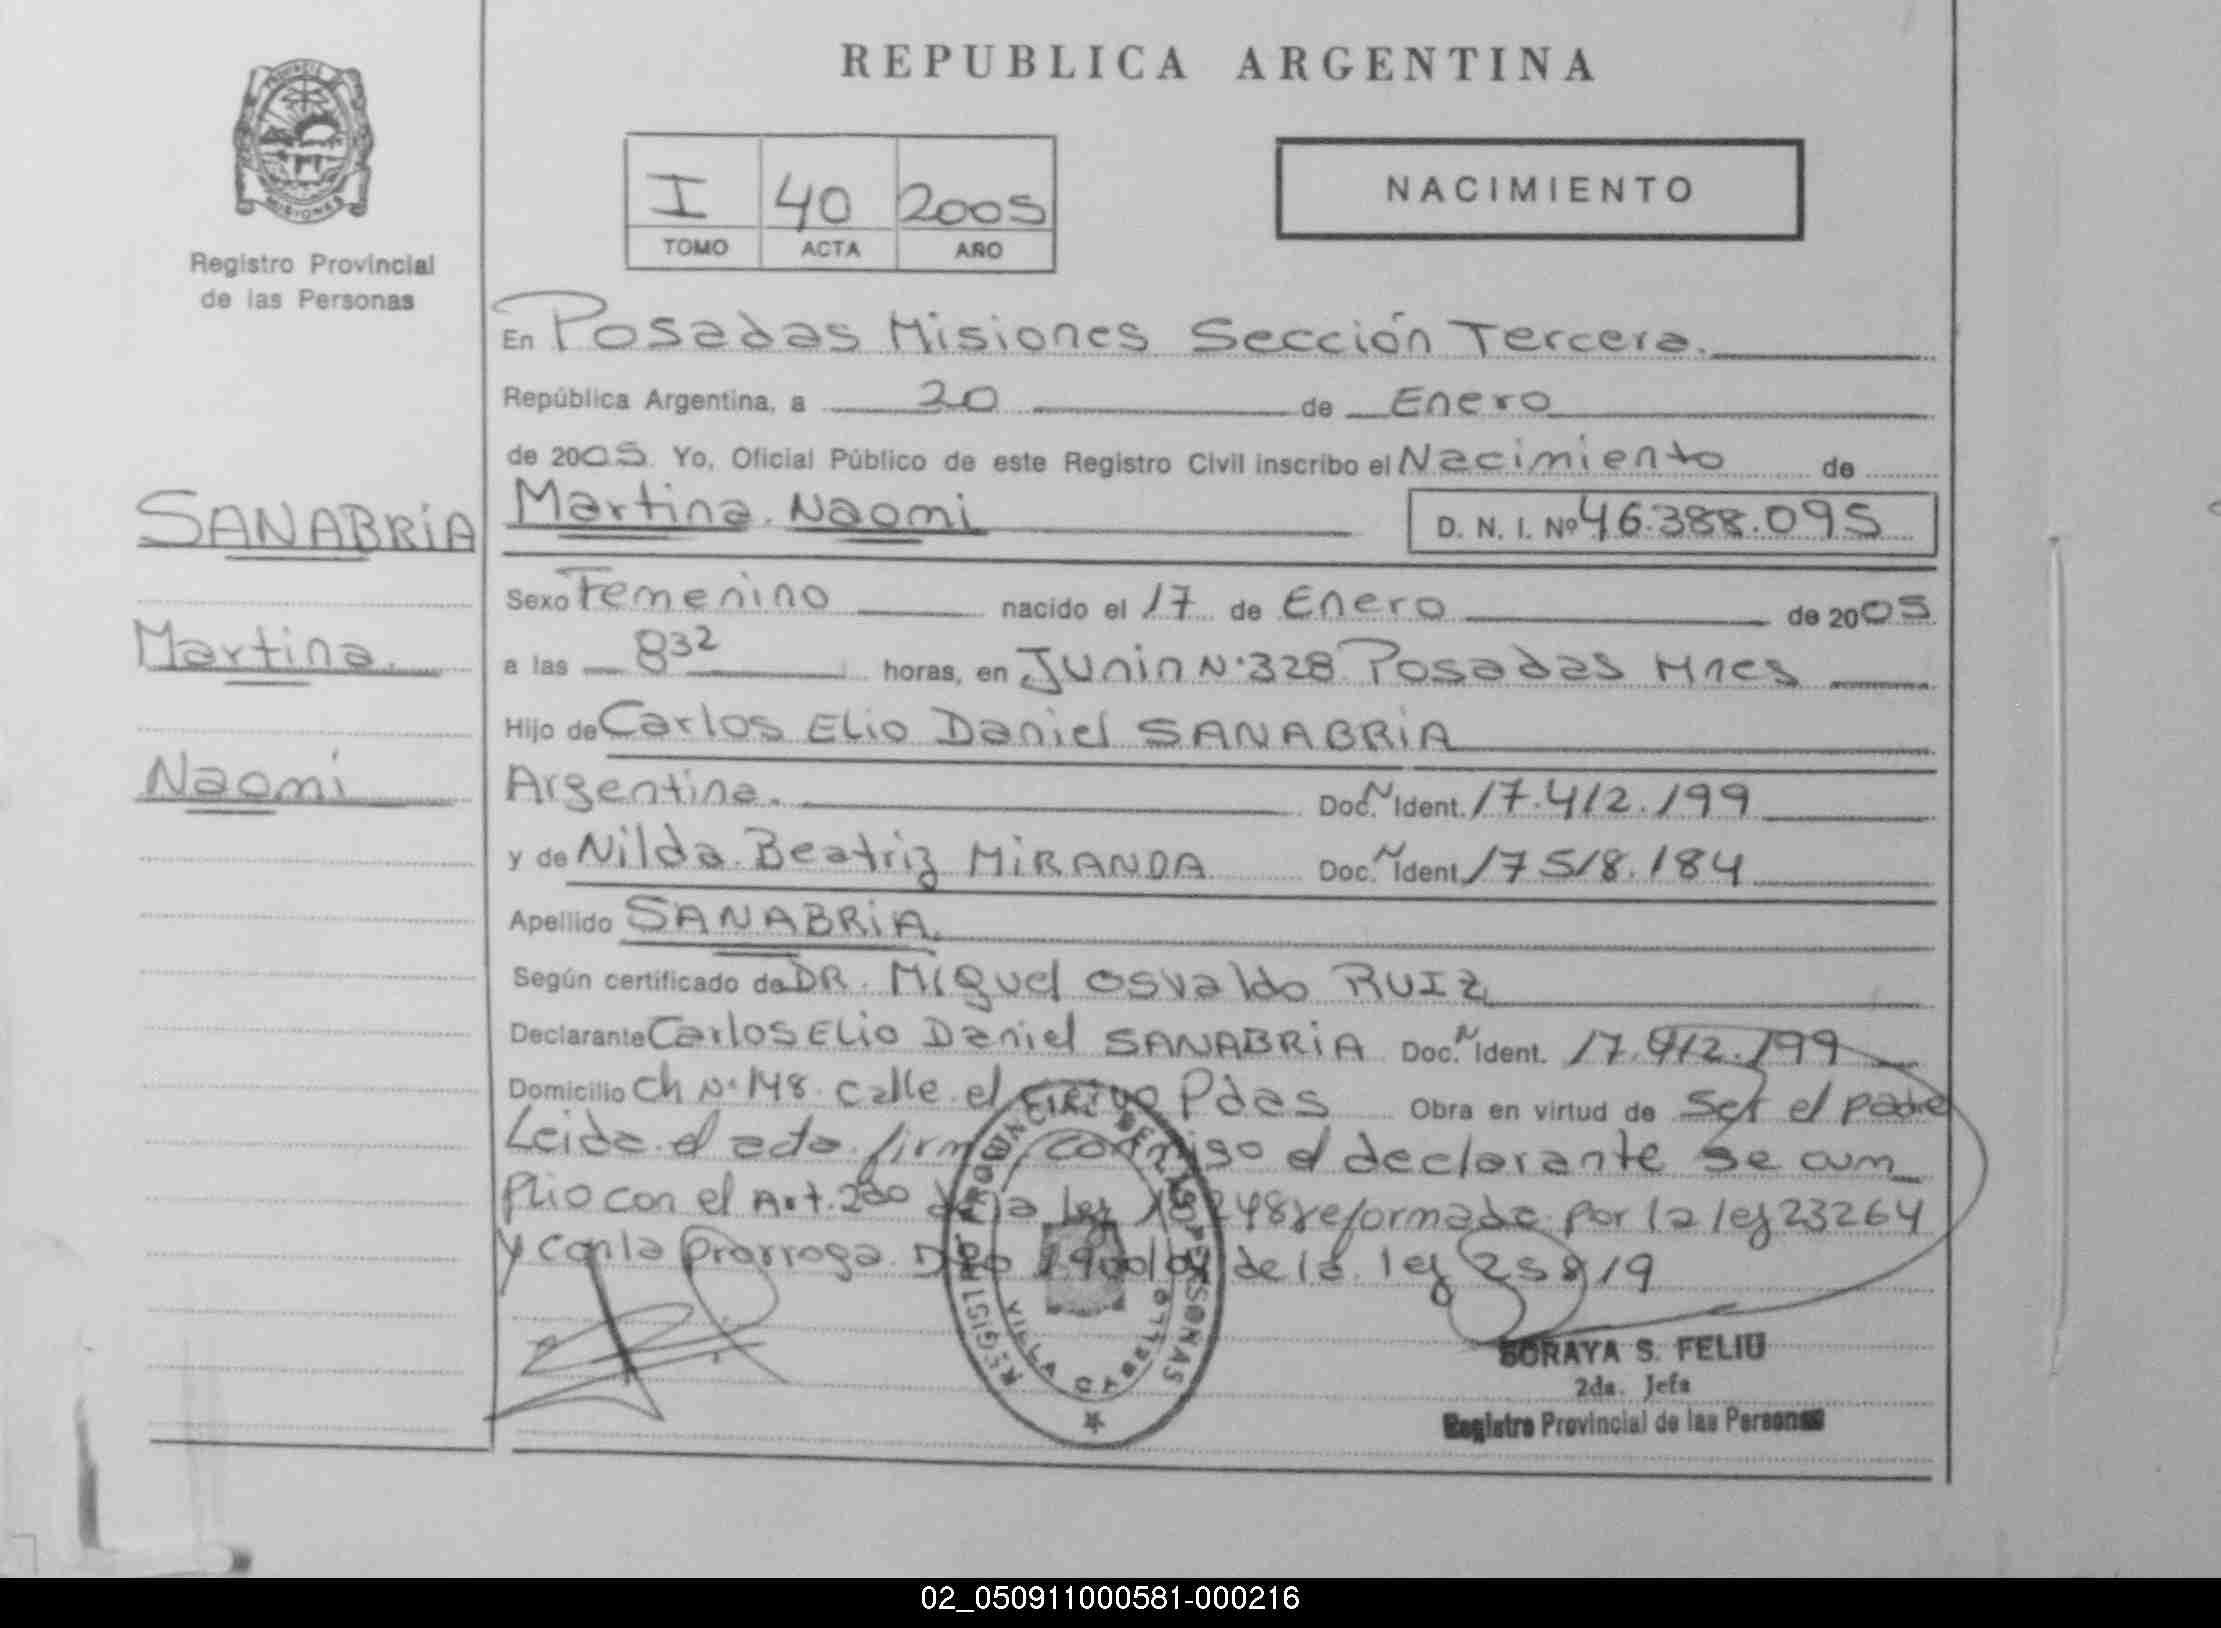 REPUBLICA ARGENTINA
PROVINCIA
MISIONES
Registro Provincial
de las Personas
I 40 2005
TOMO ACTA AÑO
NACIMIENTO
En Posadas Misiones Sección Tercera.
República Argentina, a 20 de Enero
de 2005. Yo, Oficial Público de este Registro Civil inscribo el Nacimiento de
SANABRIA
Martina
Naomi
Martina Naomi D. N. I. Nº 46.388.095
Sexo Femenino nacido el 17 de Enero de 2005
a las 8 32 horas, en Junin N° 328 Posadas Mnes
Hijo de Carlos Elio Daniel SANABRIA
Argentina. Doc. N Ident. 17.412.199
y de Nilda Beatriz MIRANDA Doc. N Ident. 17518.184
Apellido SANABRIA
Según certificado de DR. Miguel Osvaldo RUIZ
Declarante Carlos Elio Daniel SANABRIA Doc. N Ident. 17.412.199
Domicilio Ch N° 148 calle el Pdas Obra en virtud de Ser el padre
Leida el acta firma conmigo el declarante se cum
plio con el Art. 2do de la ley 18248 reformada por la ley 23264
y con la prorroga Dto 1900/04 de la ley 25819
REGISTRO PROVINCIAL DE LAS PERSONAS
VILLA CABELLO
SORAYA S. FELIU
2da. Jefa
Registro Provincial de las Personas
02_050911000581-000216